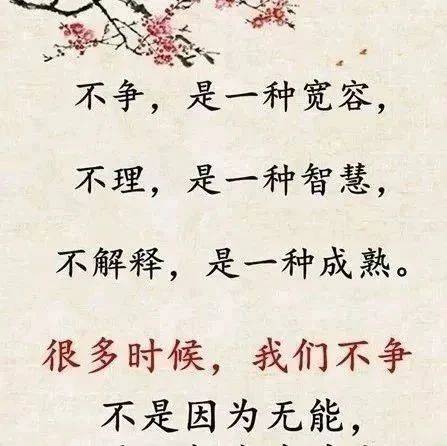 不争，是一种宽容，
不理，是一种智慧，
不解释，是一种成熟。
很多时候，我们不争
不是因为无能，